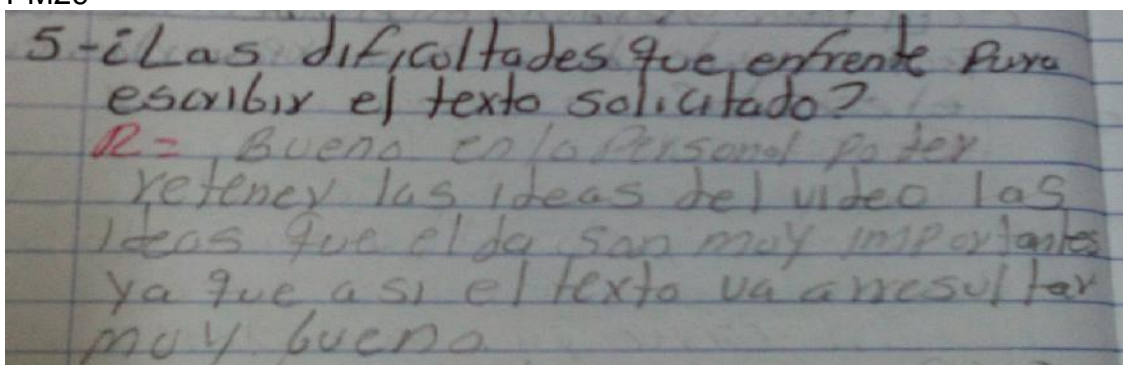 5-¿Las dificoltades que enfrente Para
escribir el texto solicitado?
R= Bueno en lo Personal poder
retener las ideas del video las
Ideas que el da son muy importantes
ya que asi el texto va a rresultar
muy bueno